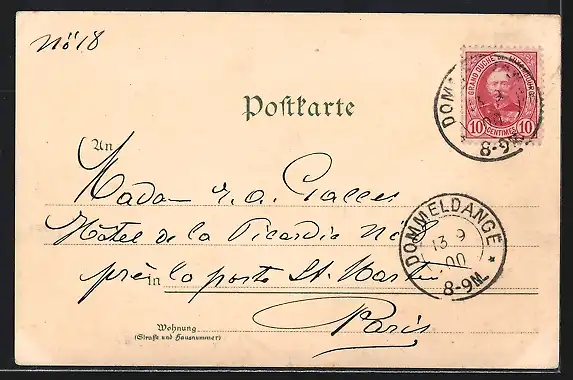 No 18
GRAND DUCHÉ DE LUXEMBOURG
10 CENTIMES 10
DOM
8-9M.
Postkarte
An
Madam
Hôtel de la Picardie No
près la porte St. Martin
in
Paris
DOMMELDANGE
13 9
00
8-9M.
Wohnung
(Straße und Hausnummer)